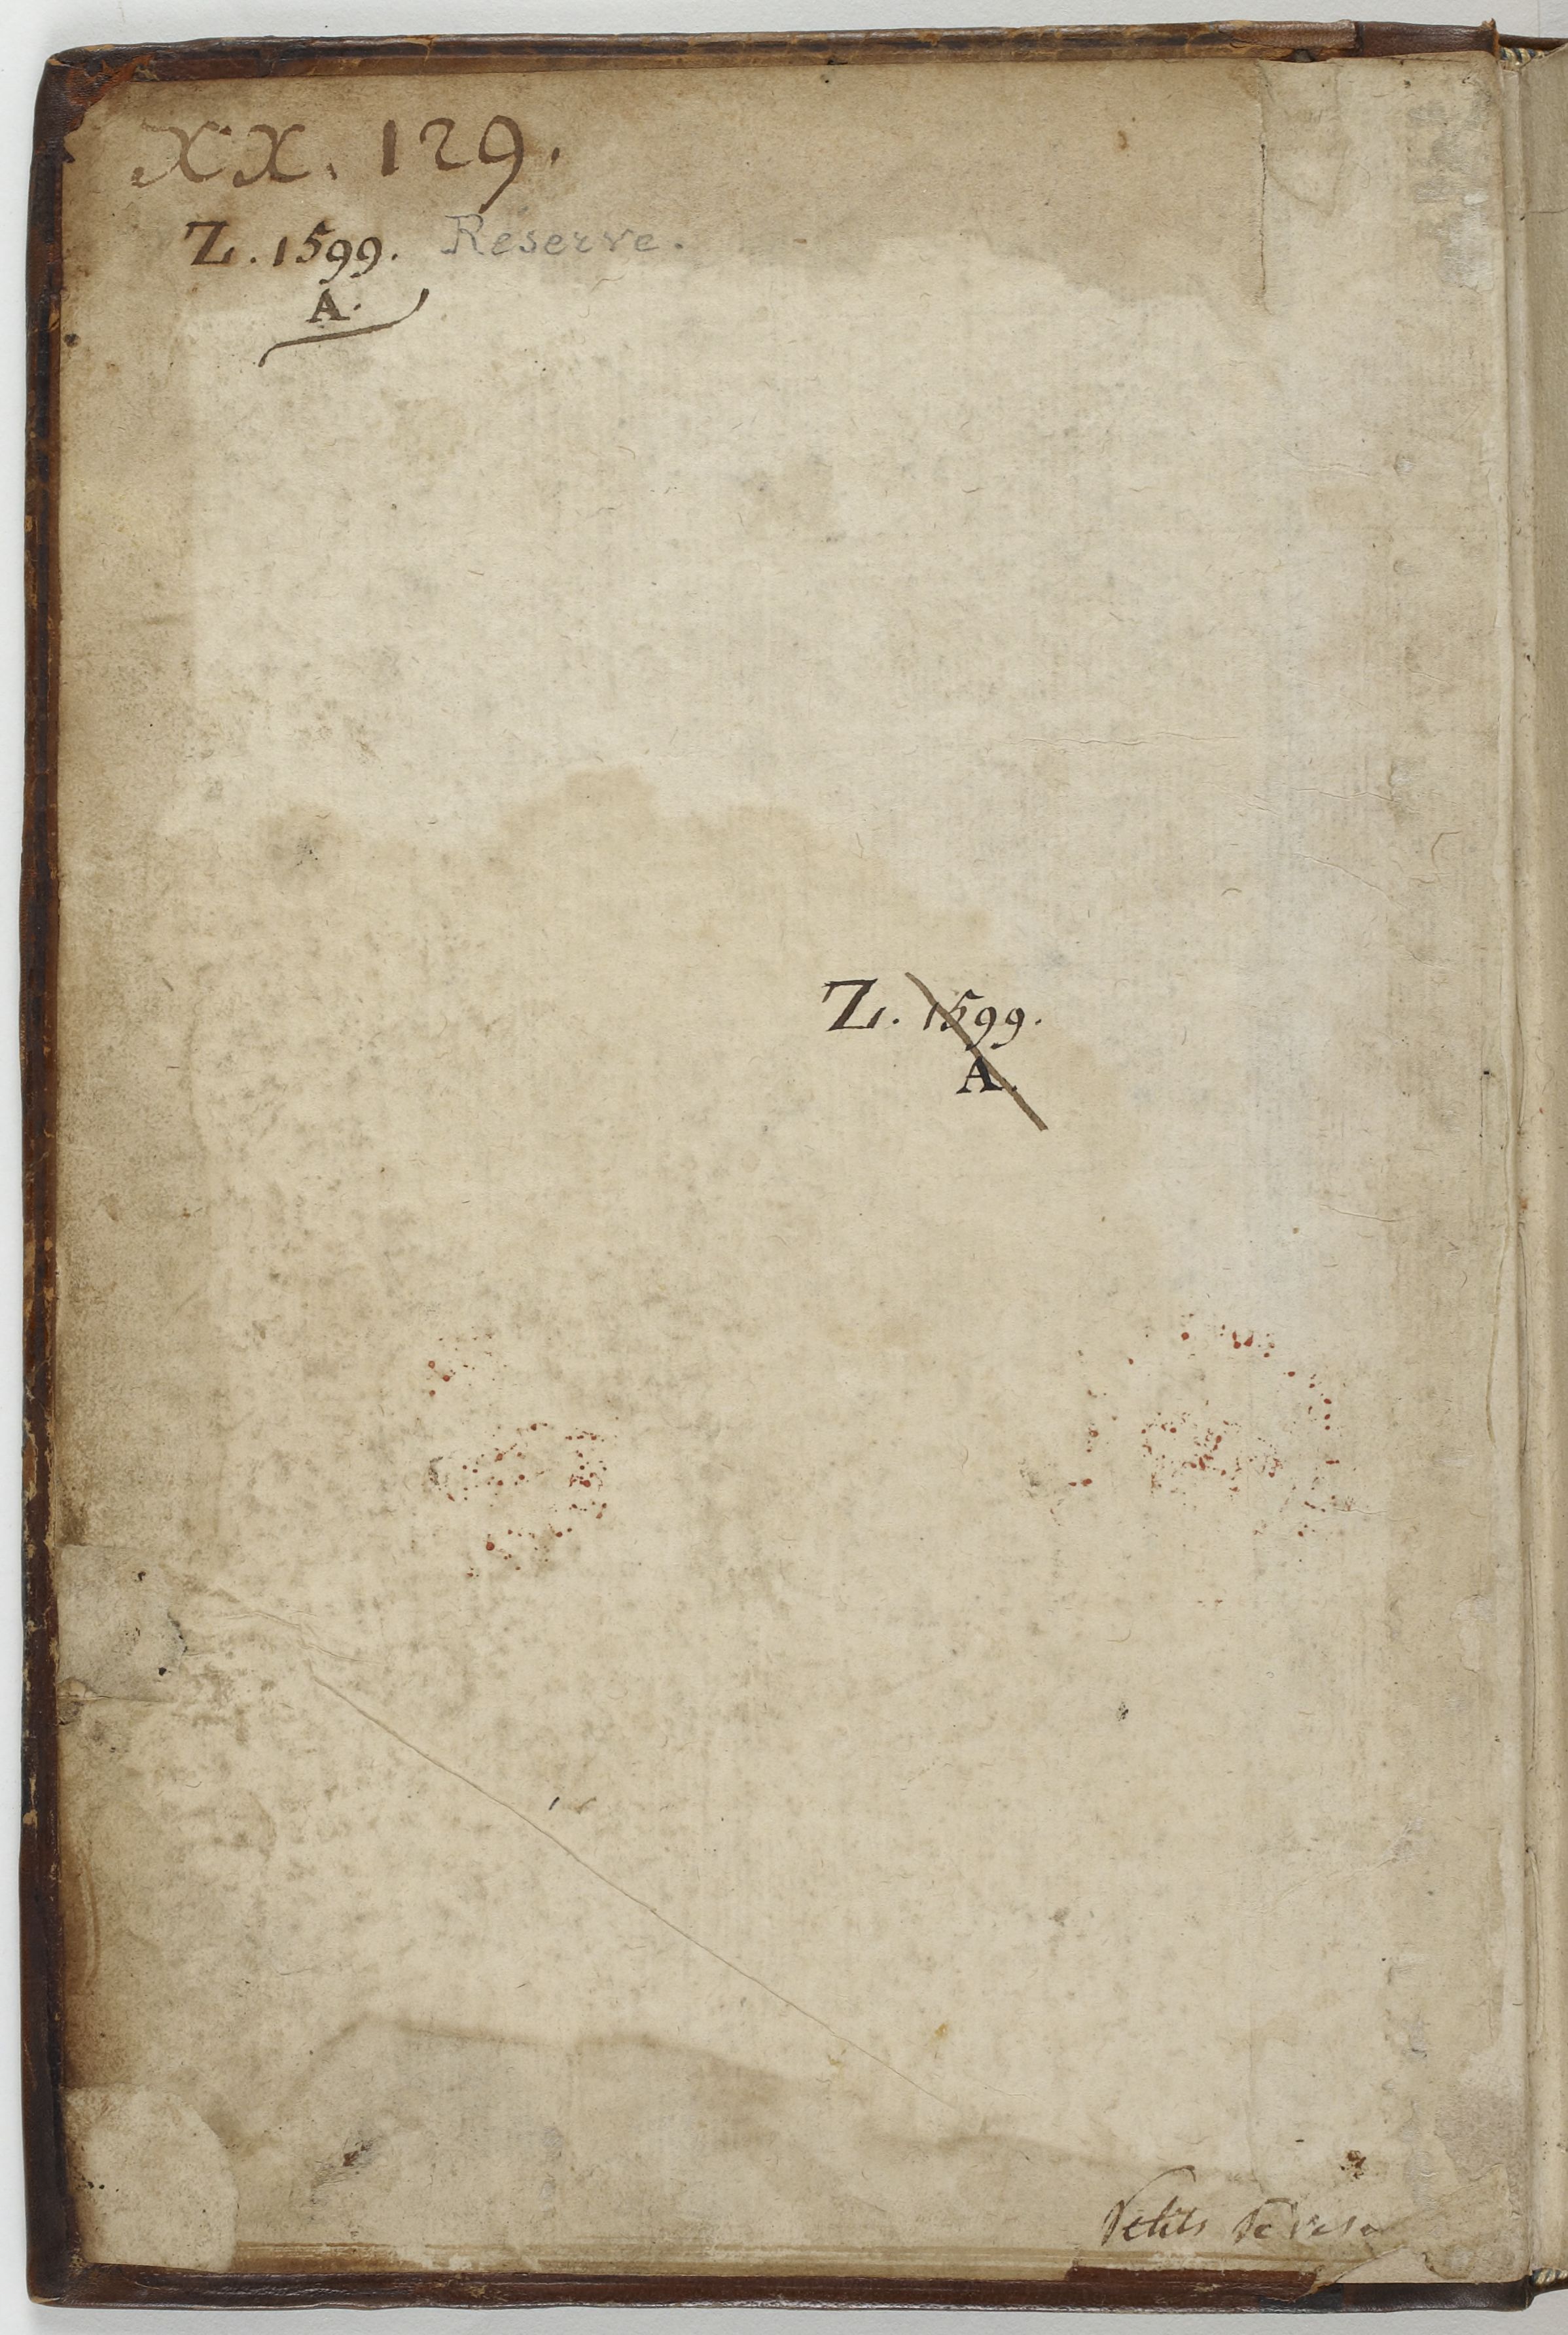 XX. 129.
Z. 1599. Reserve.
A.
Z. 1599.
A.
Petits